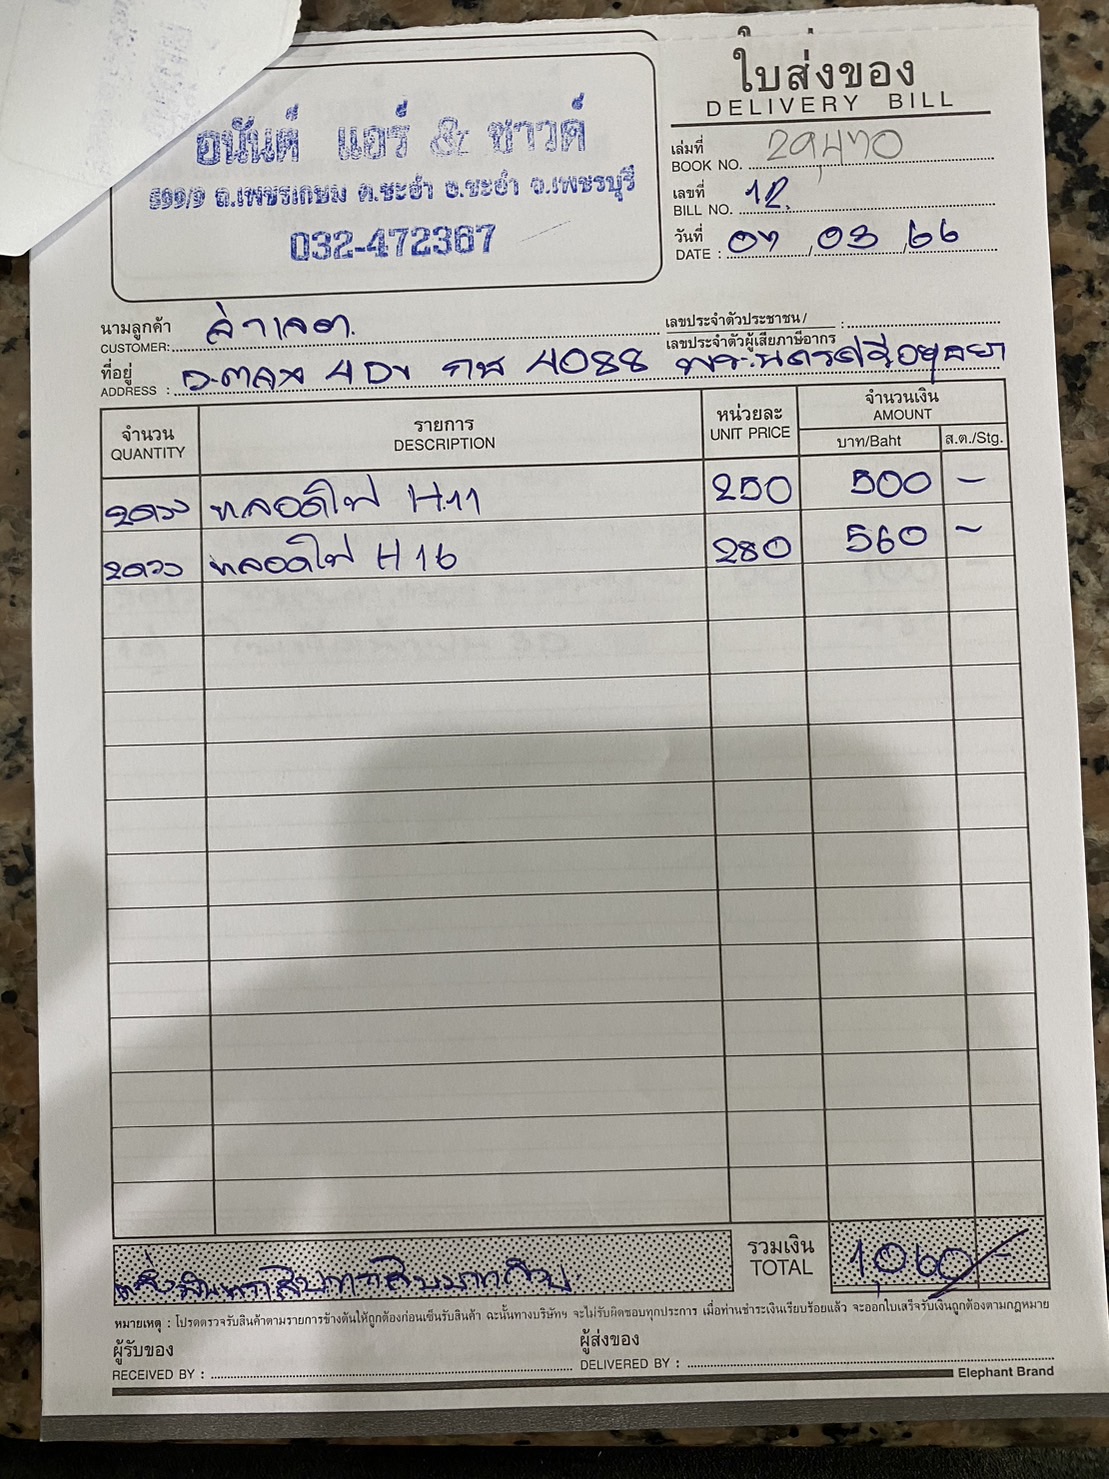 ใบส่งของ
DELIVERY BILL
อนันต์ แอร์ & ซาวด์
599/9 ถ.เพชรเกษม ต.ชะอำ อ.ชะอำ จ.เพชรบุรี
032-472367
เล่มที่
BOOK NO.
เลขที่
BILL NO. 12.
วันที่
DATE : 07 / 03 / 66
นามลูกค้า
CUSTOMER:
เลขประจำตัวประชาชน /
เลขประจำตัวผู้เสียภาษีอากร :
ที่อยู่
ADDRESS : กษ 4088 พระนครศรีอยุธยา
จำนวน
QUANTITY
รายการ
DESCRIPTION
หน่วยละ
UNIT PRICE
จำนวนเงิน
AMOUNT
บาท/Baht ส.ต./Stg.
2ดวง หลอดไฟ H11 250 500 -
2ดวง หลอดไฟ H16 280 560 -
หนึ่งพันหกสิบบาทถ้วน
รวมเงิน
TOTAL
1,060 -
หมายเหตุ : โปรดตรวจรับสินค้าตามรายการข้างต้นให้ถูกต้องก่อนเซ็นรับสินค้า ฉะนั้นทางบริษัทฯ จะไม่รับผิดชอบทุกประการ เมื่อท่านชำระเงินเรียบร้อยแล้ว จะออกใบเสร็จรับเงินถูกต้องตามกฎหมาย
ผู้รับของ
RECEIVED BY :
ผู้ส่งของ
DELIVERED BY :
Elephant Brand